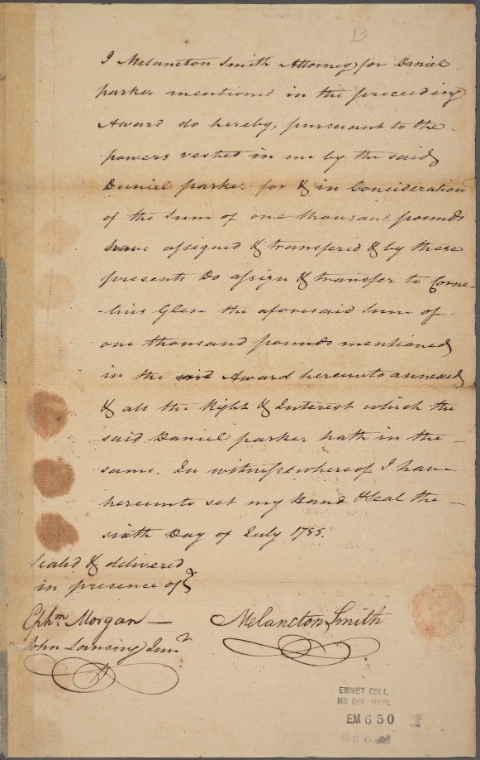 B
I Melancton Smith Attorney for Daniel
parker mentioned in the preceeding
Award do hereby, pursuant to the
powers vested in me by the said
Daniel parker for & in Consideration
of the Sum of one thousand pounds
have assigned & transfered & by these
presents Do assign & transfer to Corne-
-lius Glen the aforesaid Sum of
one thousand pounds mentioned
in the said Award hereunto annexed
& all the Right & Interest which the
said Daniel parker hath in the –
same. In witness whereof I have
hereunto set my Hand & Seal the –
sixth Day of July 1785.
Sealed & delivered
in presence of
Ephm Morgan —
Melancton Smith
John Lansing Junr
EMMET COLL.
MS DIV. NYPL
EM 650